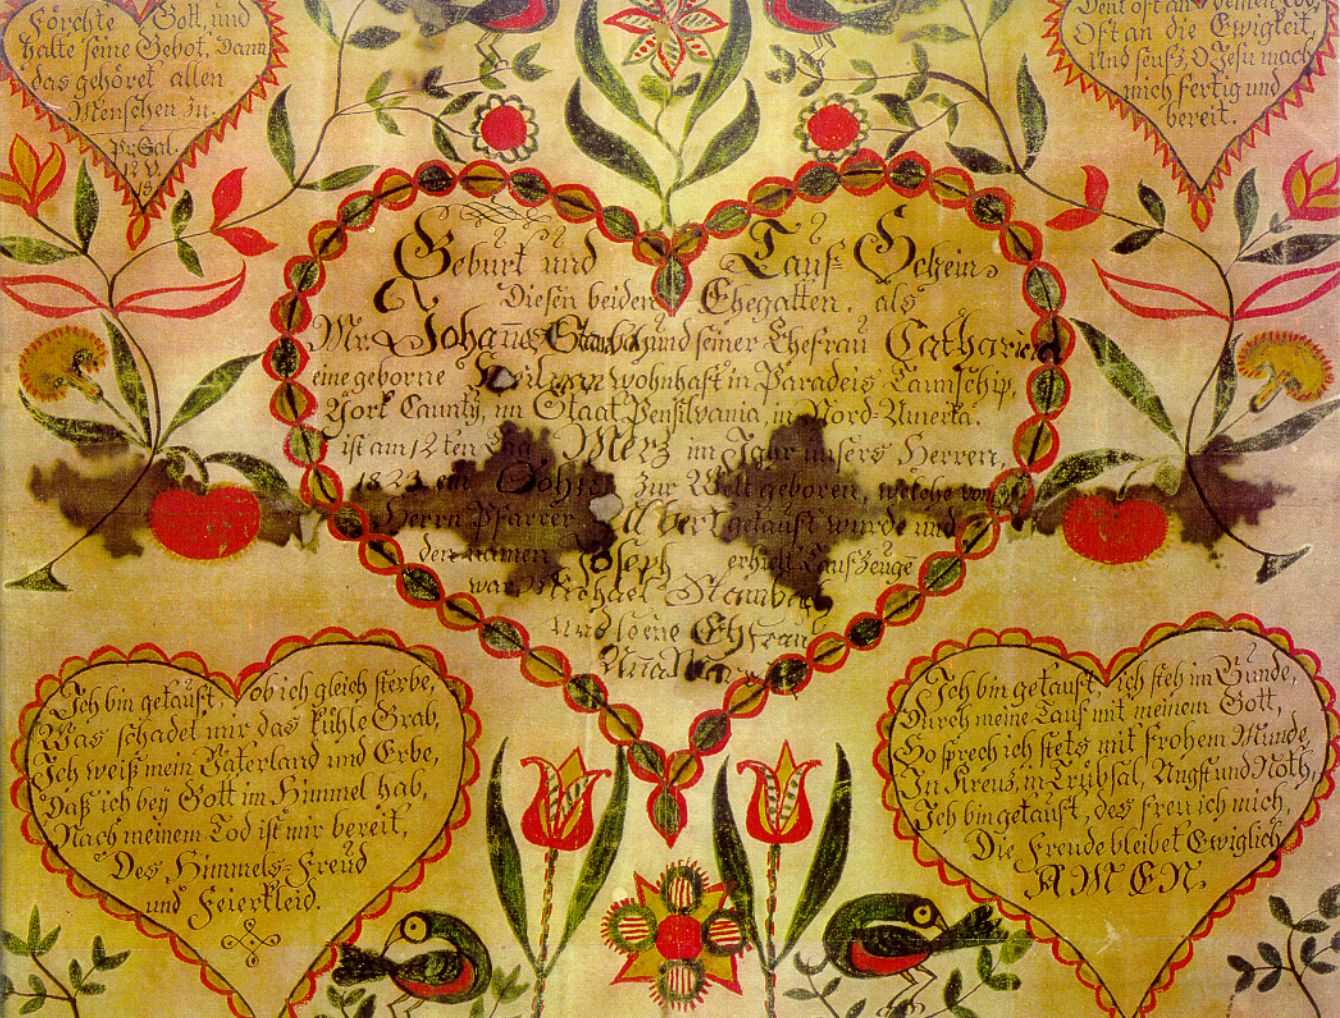 Förchte Gott, und
halte seine Gebot, Dann
das gehöret allen
Menschen zu.
Pr. Sal.
12 V.
13
Denk oft an deinen Tod,
Oft an die Ewigkeit,
Und seufz, O Jesu mach
mich fertig und
bereit.
Geburt und Tauf-Schein.
Diesen beiden Ehegatten, als
Mr. Johañes und seiner Ehefrau Catharina
eine geborne wohnhaft in Paradeis Taunschip,
York Caunty, im Staat Pensilvania, in Nord-Amerka.
ist am 12ten Tag Merz im Jahr unsers Herren,
1823 ein Sohn zur Welt geboren, welche von
Herrn Pfarrer Albert getauft wurde und
den namen Joseph erhielt Taufzeugē
war Michael Stambach
und seine Ehfrau
Aña
Ich bin getauft, ob ich gleich sterbe,
Was schadet mir das kühle Grab,
Ich weiß mein Vaterland und Erbe,
Daß ich bey Gott im Himmel hab,
Nach meinem Tod ist mir bereit,
Des Himmels-Freud
und Feierkleid.
Ich bin getauft, ich steh im Bunde,
Durch meine Tauf mit meinem Gott,
So sprech ich stets mit frohem Munde,
In Kreuz, in Trübsal, Angst und Noth,
Ich bin getauft, des freu ich mich,
Die Freude bleibet Ewiglich
AMEN.